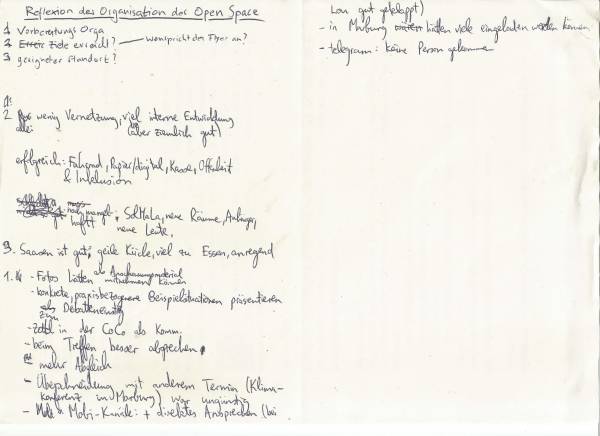 Reflexion des Organisation der Open Space
1 Vorbereitungs Orga
2 Ziele erreicht? wen spricht der Flyer an?
3 geeigneter Standort?
1:
2 wenig Vernetzung, viel interne Entwicklung
(aber ziemlich gut)
erflgreich: Fahrrad, Papier/digital, Kasse, Offenheit
& Inklusion
noch mangel-
haft: SchMaLa, neue Räume,
neue Leute,
3. Saasen ist gut, geile Küche, viel zu Essen, anregend
1. - Fotos hätten als Anschauungsmaterial
mitnehmen können
- konkrete, praxisbezogene Beispielsituationen präsentieren
zum Debatteneinstieg
- Zettel in der CoCo als Komm.
- beim Treffen besser absprechen
mehr Abgleich
- Überschneidung mit anderem Termin (Klima-
konferenz in Marburg) war ungünstig
- Mobi-Kanäle: + direktes Ansprechen (bei
Lou gut geklappt)
- in Marburg hätten viele eingeladen werden können
- telegram: keine Person gekommen